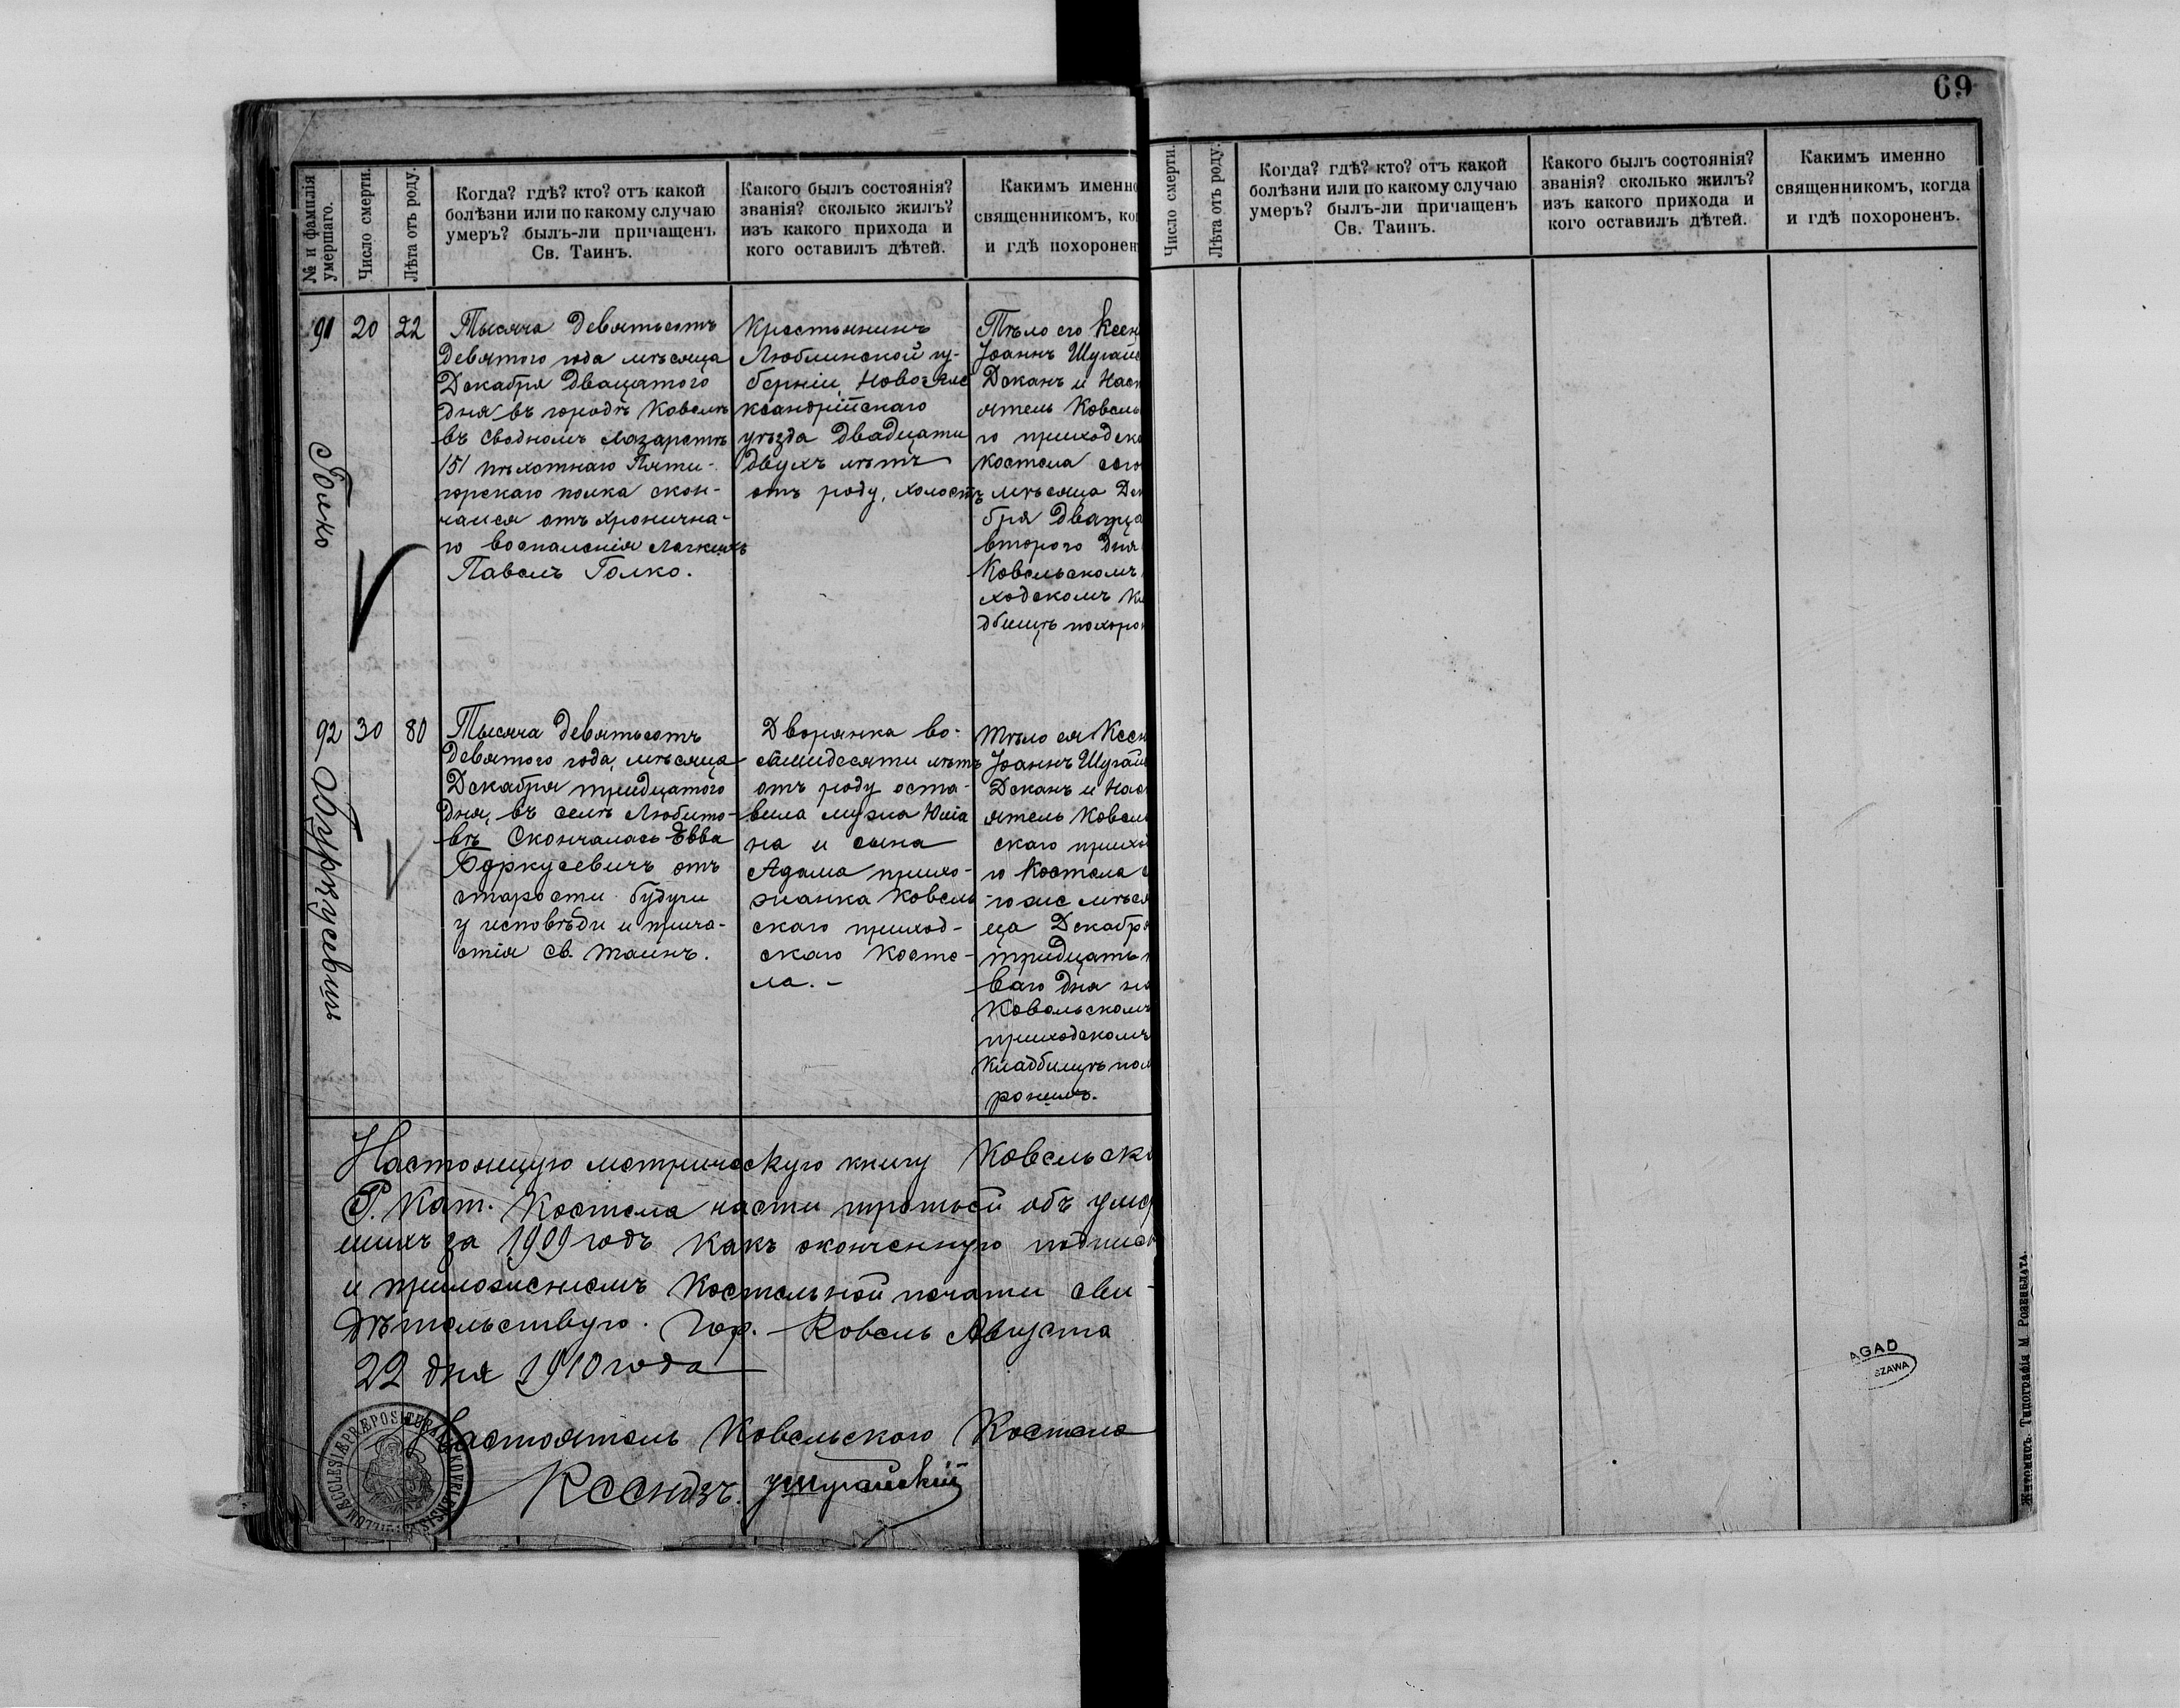 69
№ и фамилія
умершаго.
Число смерти.
Лѣта отъ роду.
Когда? гдѣ? кто? отъ какой
болѣзни или по какому случаю
умеръ? былъ-ли причащенъ
Св. Таинъ.
Какого былъ состоянія?
званія? сколько жилъ?
изъ какого прихода и
кого оставилъ дѣтей.
Какимъ именно
священникомъ, ко
и гдѣ похоронен
91
Голко
20
22
Тысяча девятьсотъ
девятого года мѣсяца
Декабря двацатого
дня въ городѣ Ковелѣ
въ сводномъ лазаретѣ
151 пѣхотнаго Пяти-
горскаго полка скон-
чался отъ хронична-
го воспаленія легкихъ
Павелъ Голко.
Крестьянинъ
Люблинской гу-
берніи, Новоале
ксандрійскаго
уѣзда двадцати
двухъ лѣтъ
отъ роду, холостъ
Тѣло его Ксен
Іоаннъ Шугайс
Деканъ и Наст
оятель Ковель
го приходска
костела сего
мѣсяца Дек
бря двадца
второго дня
Ковельскомъ
ходскомъ Кл
дбищѣ похоро
92
Боркусевичъ
30
80
Тысяча девятьсотъ
девятого года, мѣсяца
Декабря тридцатого
дня, въ селѣ Любито-
вѣ скончалась Эвва
Боркусевичъ отъ
старости будучи
у исповѣди и прича-
стія св. таинъ.
Дворянка во-
сьмидесяти лѣтъ
отъ роду оста-
вила мужа Юліа
на и сына
Адама прихо-
жанка Ковель
скаго приход-
скаго косте-
ла. -
Тѣло ея Ксен
Іоаннъ Шугай
Деканъ и Нас
оятель Ковель
скаго прихо
го Костела с
го же мѣся
ца Декабря
тридцать п
ваго дня на
Ковельскомъ
приходскомъ
Кладбищѣ пох
ронилъ.
Настоящую метрическую книгу Ковельск
Р. Кат. Костела части третьей объ умер
шихъ за 1909 годъ какъ оконченную подпис
и приложеніемъ Костельной печати сви-
дѣтельствую. Гор. Ковель Августа
22 дня 1910 года
Настоятель Ковельского Костела
Ксендзъ. Шугайскій
SIGILLUM ECCLESIÆ PRÆPOSITURALIS KOVELENSIS
Число смерти.
Лѣта отъ роду.
Когда? гдѣ? кто? отъ какой
болѣзни или по какому случаю
умеръ? былъ-ли причащенъ
Св. Таинъ.
Какого былъ состоянія?
званія? сколько жилъ?
изъ какого прихода и
кого оставилъ дѣтей.
Какимъ именно
священникомъ, когда
и гдѣ похороненъ.
AGAD
SZAWA
Житомиръ. Типографія М Розенблата.